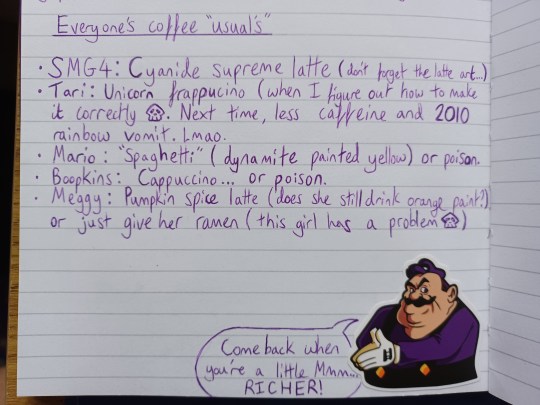 Everyone's coffee "usual's"
· SMG4: Cyanide supreme latte (don't forget the latte art...)
· Tari: Unicorn frappucino (when I figure out how to make
it correctly. Next time, less caffeine and 2010
rainbow vomit. Lmao.
· Mario: "Spaghetti" (dynamite painted yellow) or poison.
· Boopkins: Cappuccino... or poison.
· Meggy: Pumpkin spice latte (does she still drink orange paint?)
or just give her ramen (this girl has a problem)
Come back when
you're a little Mmm...
RICHER!